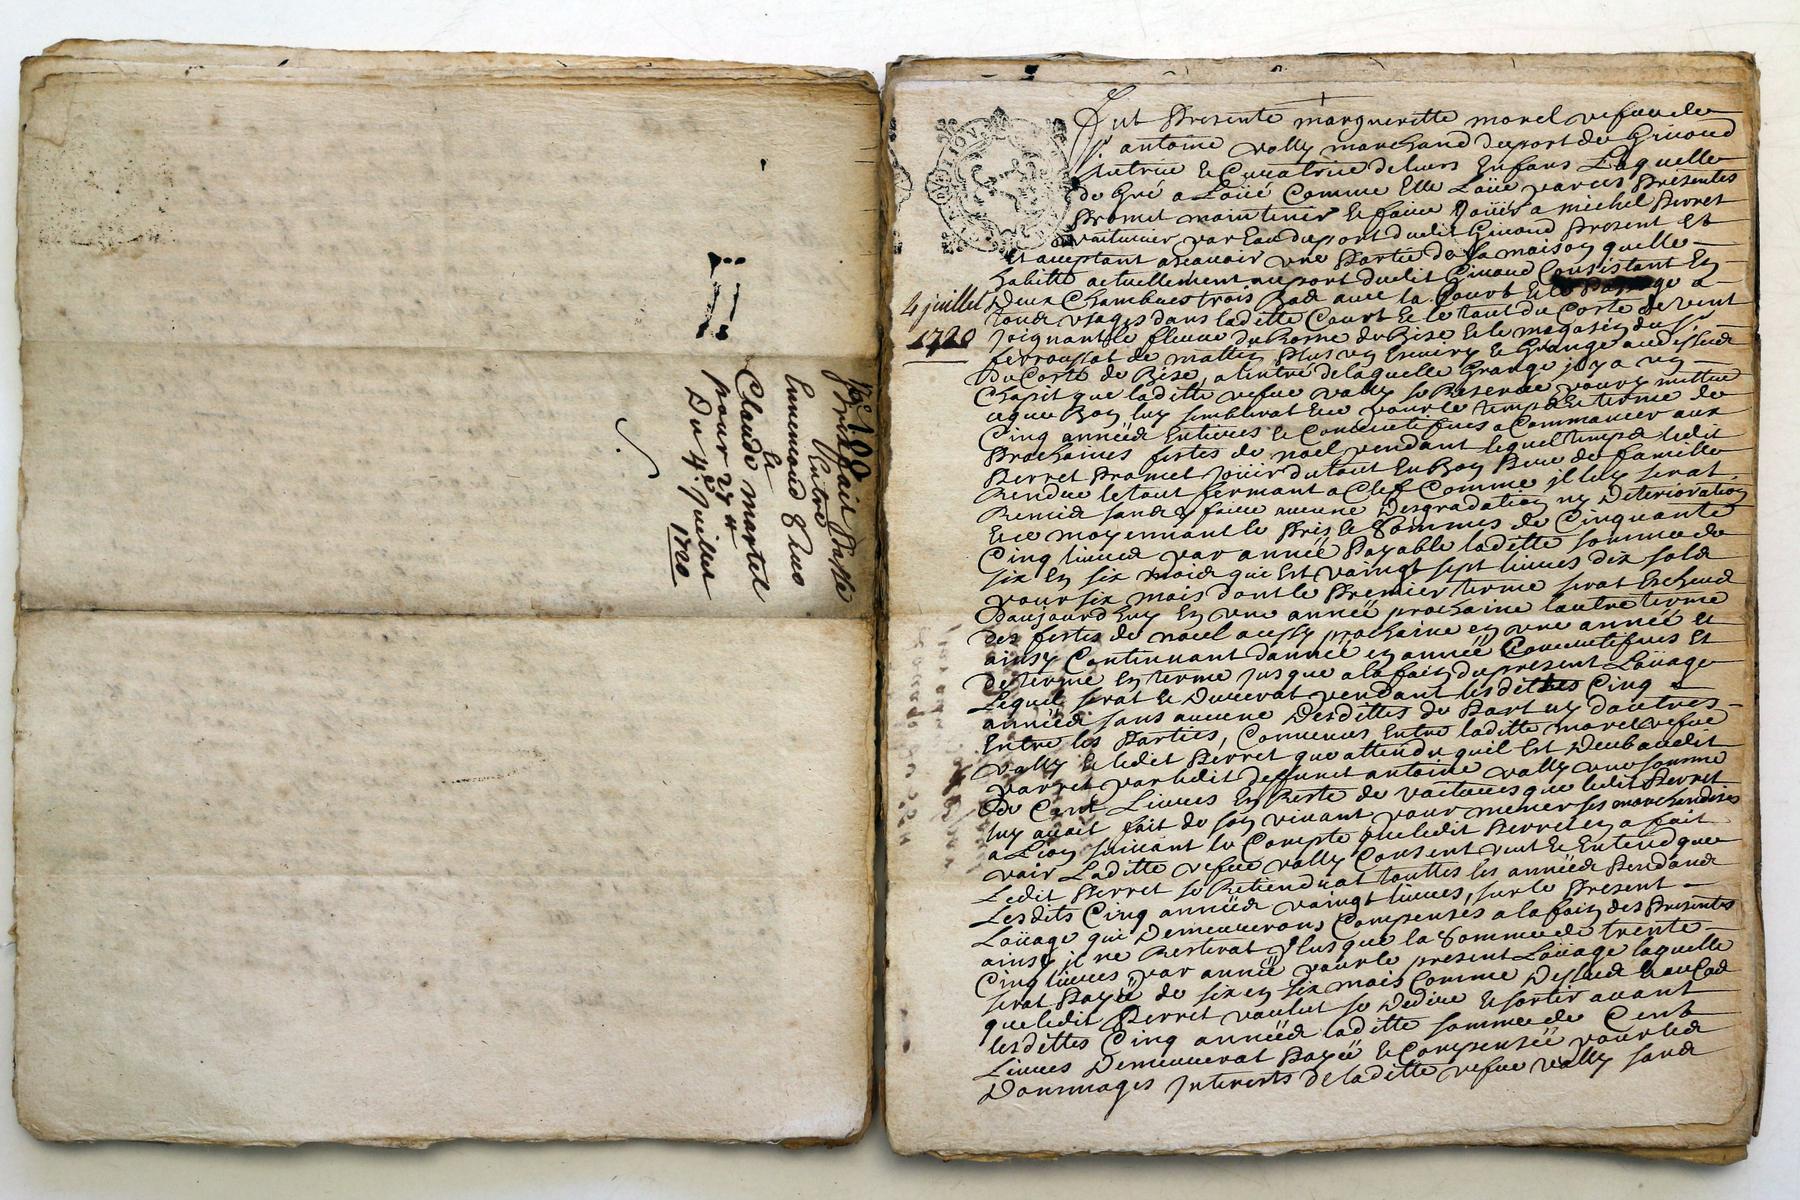 N.° 100
Prixfait Passé
Entre
Ennemond
et
Claude martel
pour 27 ₶
Du 4.e Juillet
1720
4 juillet
1720
Fut Presente margueritte morel vefue de
antoine vally marchand du port de Giuord
tutrice et Curatrice de leurs Enfans Laquelle
de Gré a Loüé Comme Elle Loüe par ces Présentes
Promet maintenir et faire Joüir a michel Perret
voiturier par Eau du port dudit Giuord Present et
et acceptant a scauoir vne Partie de la maison quelle
habitte actuellement au port dudit Giuord Consistant En
Deux Chambres trois Bas auec la Court et le
tous vsages dans laditte Court et le tout du Costé de vent
joignant le fleuue du Rosne de Bise et le magasin du Sr
ferroussat de mattin Plus vn Escurie et Grange au dessus
du Costé de Bise, a lentré de laquelle Grange jl y a vn
Chapit que laditte vefue vally se Reserue pour y mettre
ce que Bon luy semblerat Et ce pour le temps et terme de
Cinq année Entieres et Consecutifues a Commancer aux
Prochaines festes de noel pendant lequel temps ledit
Perret Promet Joüir du tout En Bon Pere de famille
Rendre le tout fermant a Clef Comme jl luy serat
Remis sans y faire aucune Desgradation ny Deterioration
Et ce moyennant le Prix et Sommes de Cinquante
Cinq liures par année Payable laditte somme de
six En six mois qui Est vaingt sept liures dix sols
pour six mois dont le Premier terme serat Escheu
Daujourdhuy En vne année prochaine lautre terme
des festes de noel aussy prochaine en vne année et
ainsy Continuant dannée en année Consecutifues Et
de terme En terme jusque a la fain du present Loüage
Lequel serat et Durerat pendant lesdittes Cinq
années sans aucune Desdittes de Part ny dautres
Entre les Parties, Conuenus Entre laditte morel vefue
vally et ledit Perret que attendu quil Est Deub audit
Perret par ledit deffunct antoine vally vne somme
de Cent Liures En Reste de voitures que ledit Perret
luy auait fait de son viuant pour mener ses marchandises
a Lion suiuant le Compte que ledit Perret en a fait
voir Laditte vefue vally Consent veut et Entend que
Ledit Perret se Retiendrat touttes les années Pendant
Lesdits Cinq années vaingt liures, sur le Present
Loüage qui Demeureront Compensés a la fain des Presentes
ainsy jl ne Resterat Plus que la Somme de trente
Cinq liures par année pour le present Loüage laquelle
serat Payée de six en six mois Comme Dessus et au Cas
que ledit Perret voulut se Dedire et sortir auant
lesdittes Cinq années laditte somme de Cent
Liures Demeurerat Payée et Compensée pour les
Dommages Jnterests de laditte vefue vally sans